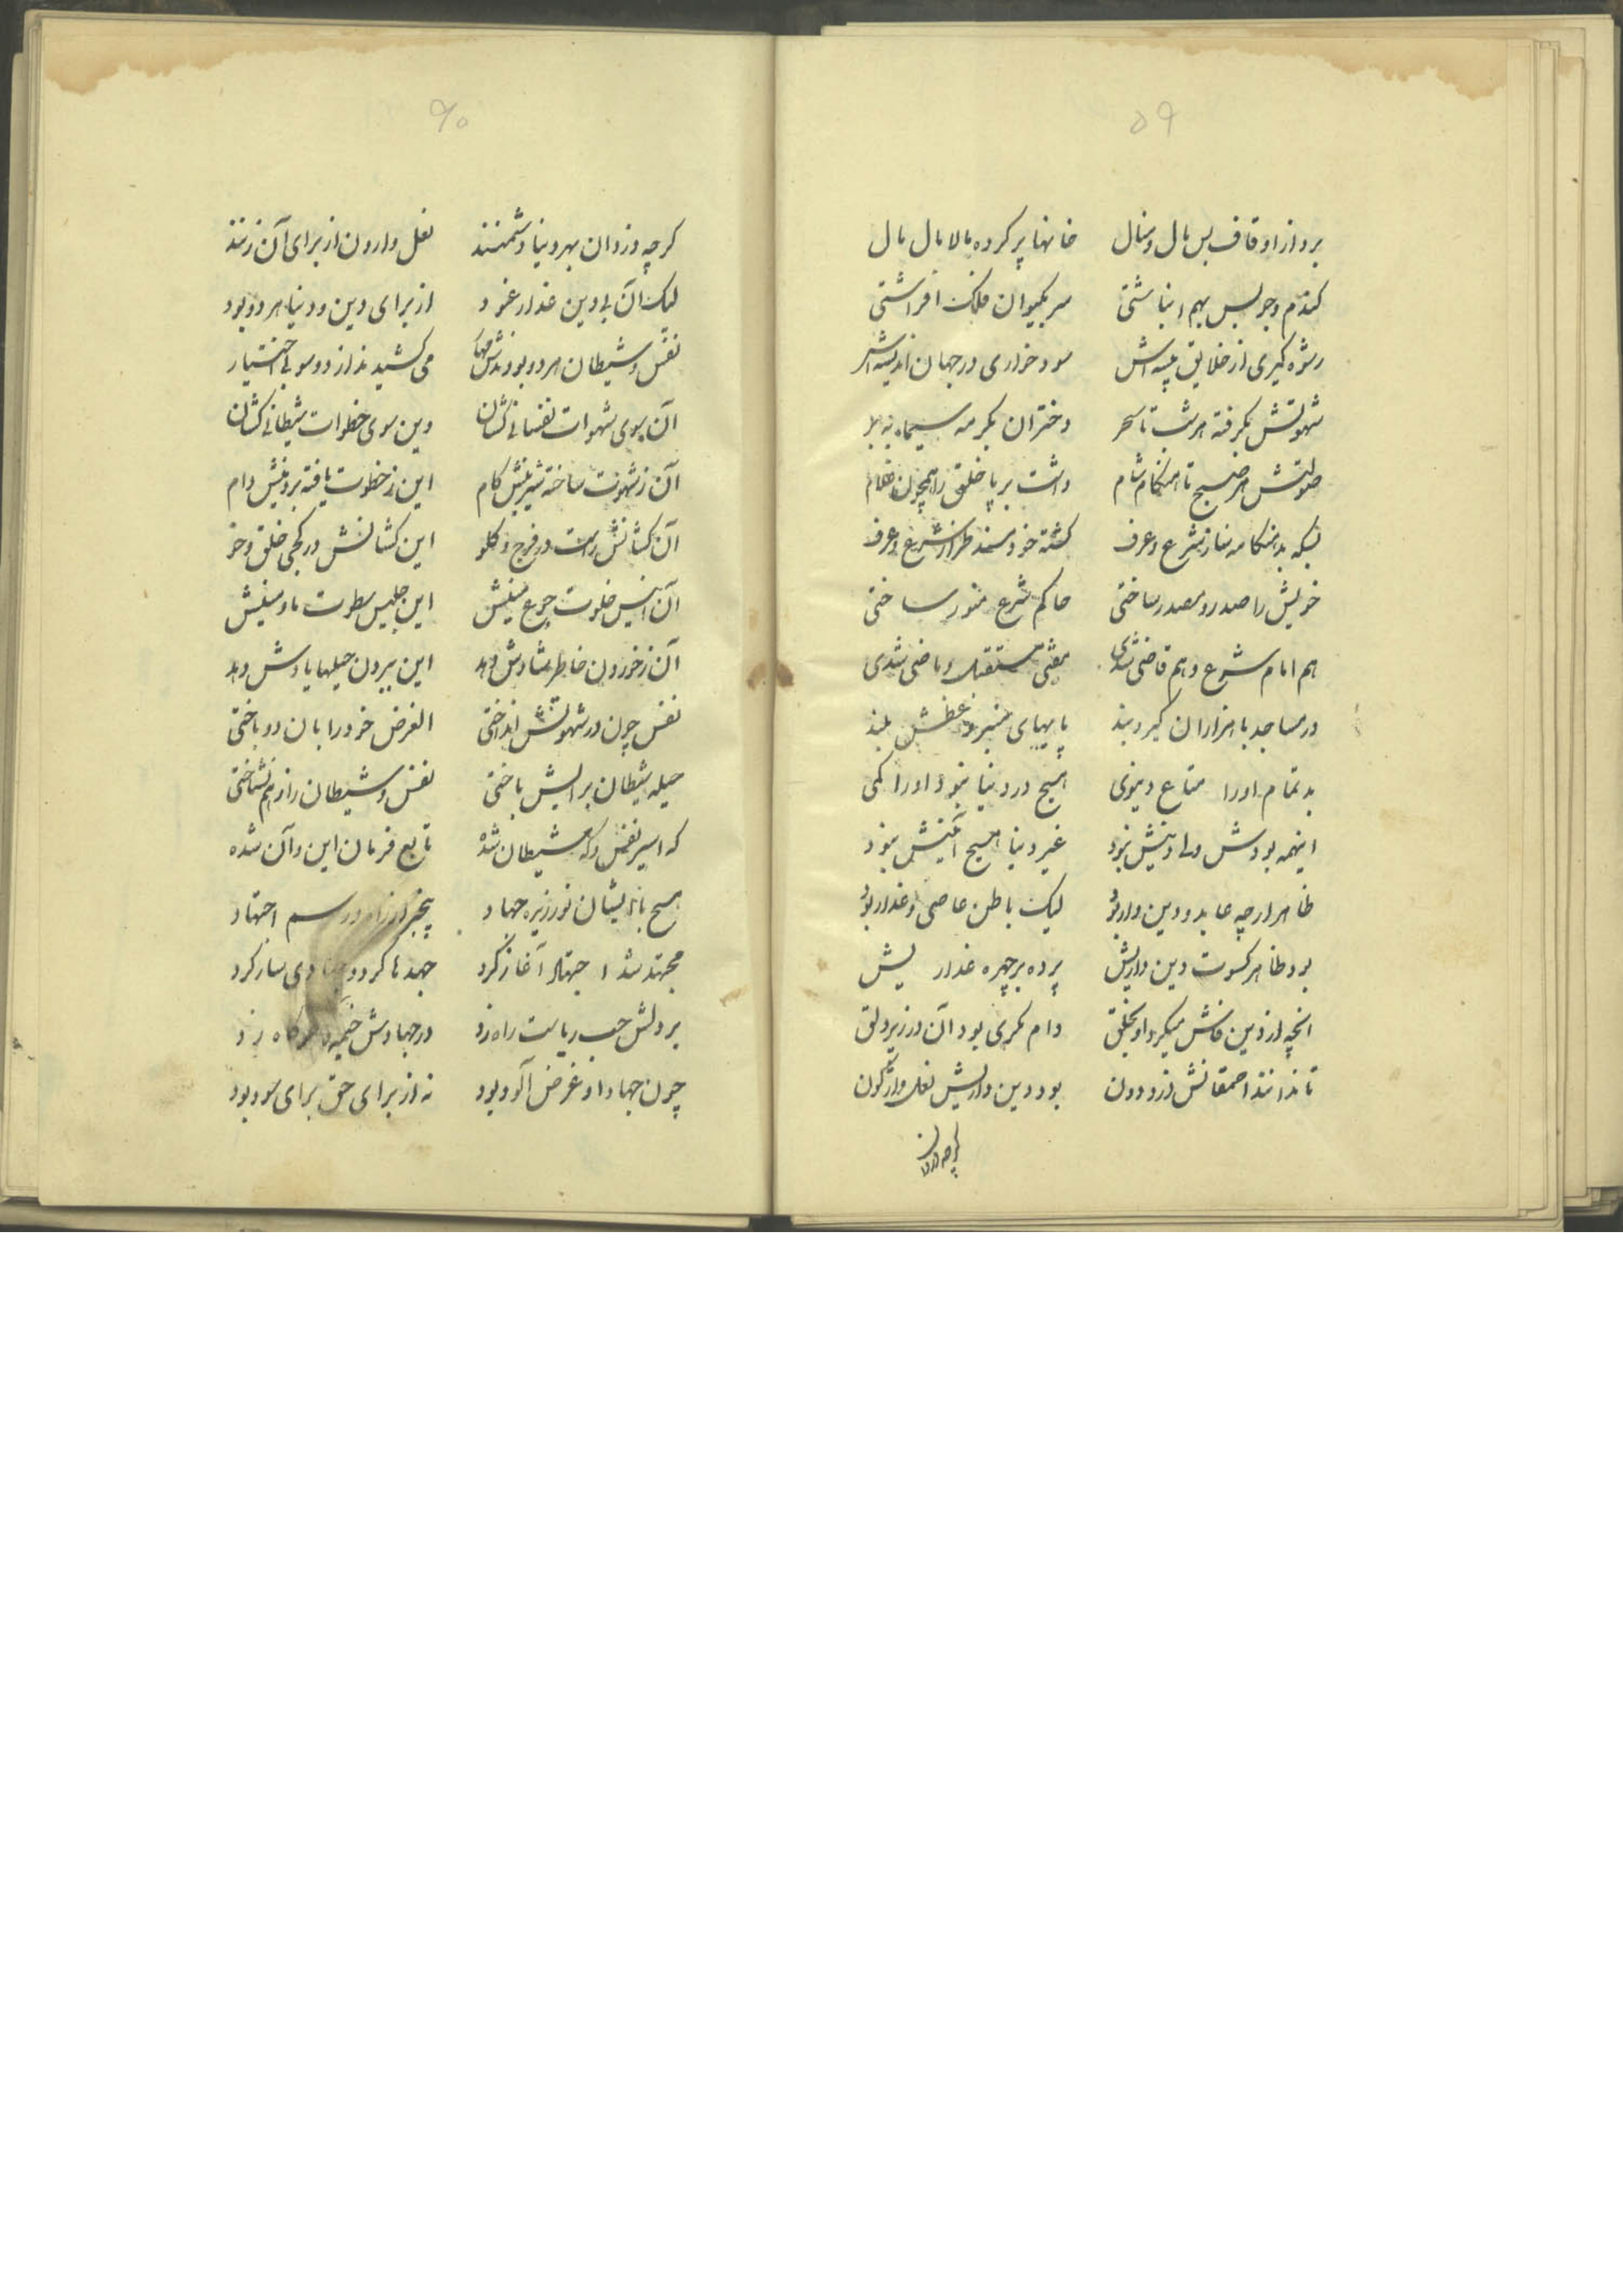 ۵۹
برد از اوقاف بس مال و منال خانها پر کرده مالامال مال
کندم و جو بس بهم انباشتی سر بکیوان فلک افراشتی
رشوه کیری از خلایق پیشه اش سود خواری در جهان اندیشه اش
شهوتش بکرفته هر شب تا سحر دختران بکر مه سیما به بر
صولتش هر صبح تا هنکام شام داشت بر پا خلق را همچون غلام
بسکه بد هنکامه ساز شرع و عرف کشته خود مسند طراز شرع و عرف
خویش را صدر و مصدر ساختی حاکم شرع منور ساختی
هم امام شرع و هم قاضی شدی مفتی مستقبل و ماضی شدی
در مساجد با هزاران کیر و بند پایهای منبر وعظش بلند
بد تمام او را متاع دنیوی هیچ در دنیا نبود او را کمی
اینهمه بودش ولی دینش نبود غیر دنیا هیچ آئینش نبود
ظاهر ار چه عابد و دین دار بود لیک باطن عاصی و غدار بود
بود ظاهر کسوت دین داریش پرده بر چهره غداریش
انچه از دین فاش میکرد او بخلق دام مکری بود آن در زیر دلق
تا ندانند احمقانش دزد دون بود دین داریش نعل واژکون
کرچه دزدان
۶۰
کرچه دزدان بهر دنیا دشمنند نعل وارون از برای آن زنند
لیک آن بی دین غدار عنود از برای دین و دنیا هر دو بود
نفس و شیطان هر دو بودندش مهار می کشیدند از دو سو بی اختیار
آن بسوی شهوات نفسانی کشان وین سوی خطوات شیطانی کشان
آن ز شهوت ساخته شیرینش کام این ز خطوت یافته بر دینش دام
آن کشانش راست در فرج و کلو این کشانش در کجی خلق و خو
آن انیس خلوت جوع منیش این جلیس سطوت ما و منیش
آن ز خوردن خاطر شادش دهد این ببردن حیلها یادش دهد
نفس چون در شهوتش انداختی الغرض خود را بان دو باختی
حیله شیطان برایش باختی نفس و شیطان را ز هم نشناختی
که اسیر نفس و که شیطان شده تابع فرمان این و آن شده
هیچ باز ایشان نورزیده جهاد بیخبر از راه و رسم اجتهاد
مجتهد شد اجتهاد آغاز کرد جهدها کرد و جهادی ساز کرد
بر دلش حب ریاست راه زد در جهادش خیمه و خرکاه زد
چون جهاد او غرض آلود بود نه از برای حق برای سود بود